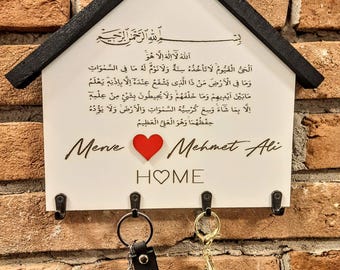 بِسْمِ اللهِ الرَّحْمٰنِ الرَّحِيمِ
اَللهُ لَا اِلٰهَ اِلَّا هُوَ
الْحَيُّ الْقَيُّومُ لَا تَأْخُذُهُ سِنَةٌ وَلَا نَوْمٌ لَهُ مَا فِى السَّمٰوَاتِ
وَمَا فِى الْاَرْضِ مَنْ ذَا الَّذِى يَشْفَعُ عِنْدَهُ اِلَّا بِاِذْنِهِ يَعْلَمُ
مَا بَيْنَ اَيْدِيهِمْ وَمَا خَلْفَهُمْ وَلَا يُحِيطُونَ بِشَىْءٍ مِنْ عِلْمِهِ
اِلَّا بِمَا شَاءَ وَسِعَ كُرْسِيُّهُ السَّمٰوَاتِ وَالْاَرْضَ وَلَا يَؤُدُهُ
حِفْظُهُمَا وَهُوَ الْعَلِىُّ الْعَظِيمُ
Merve Mehmet Ali
HOME